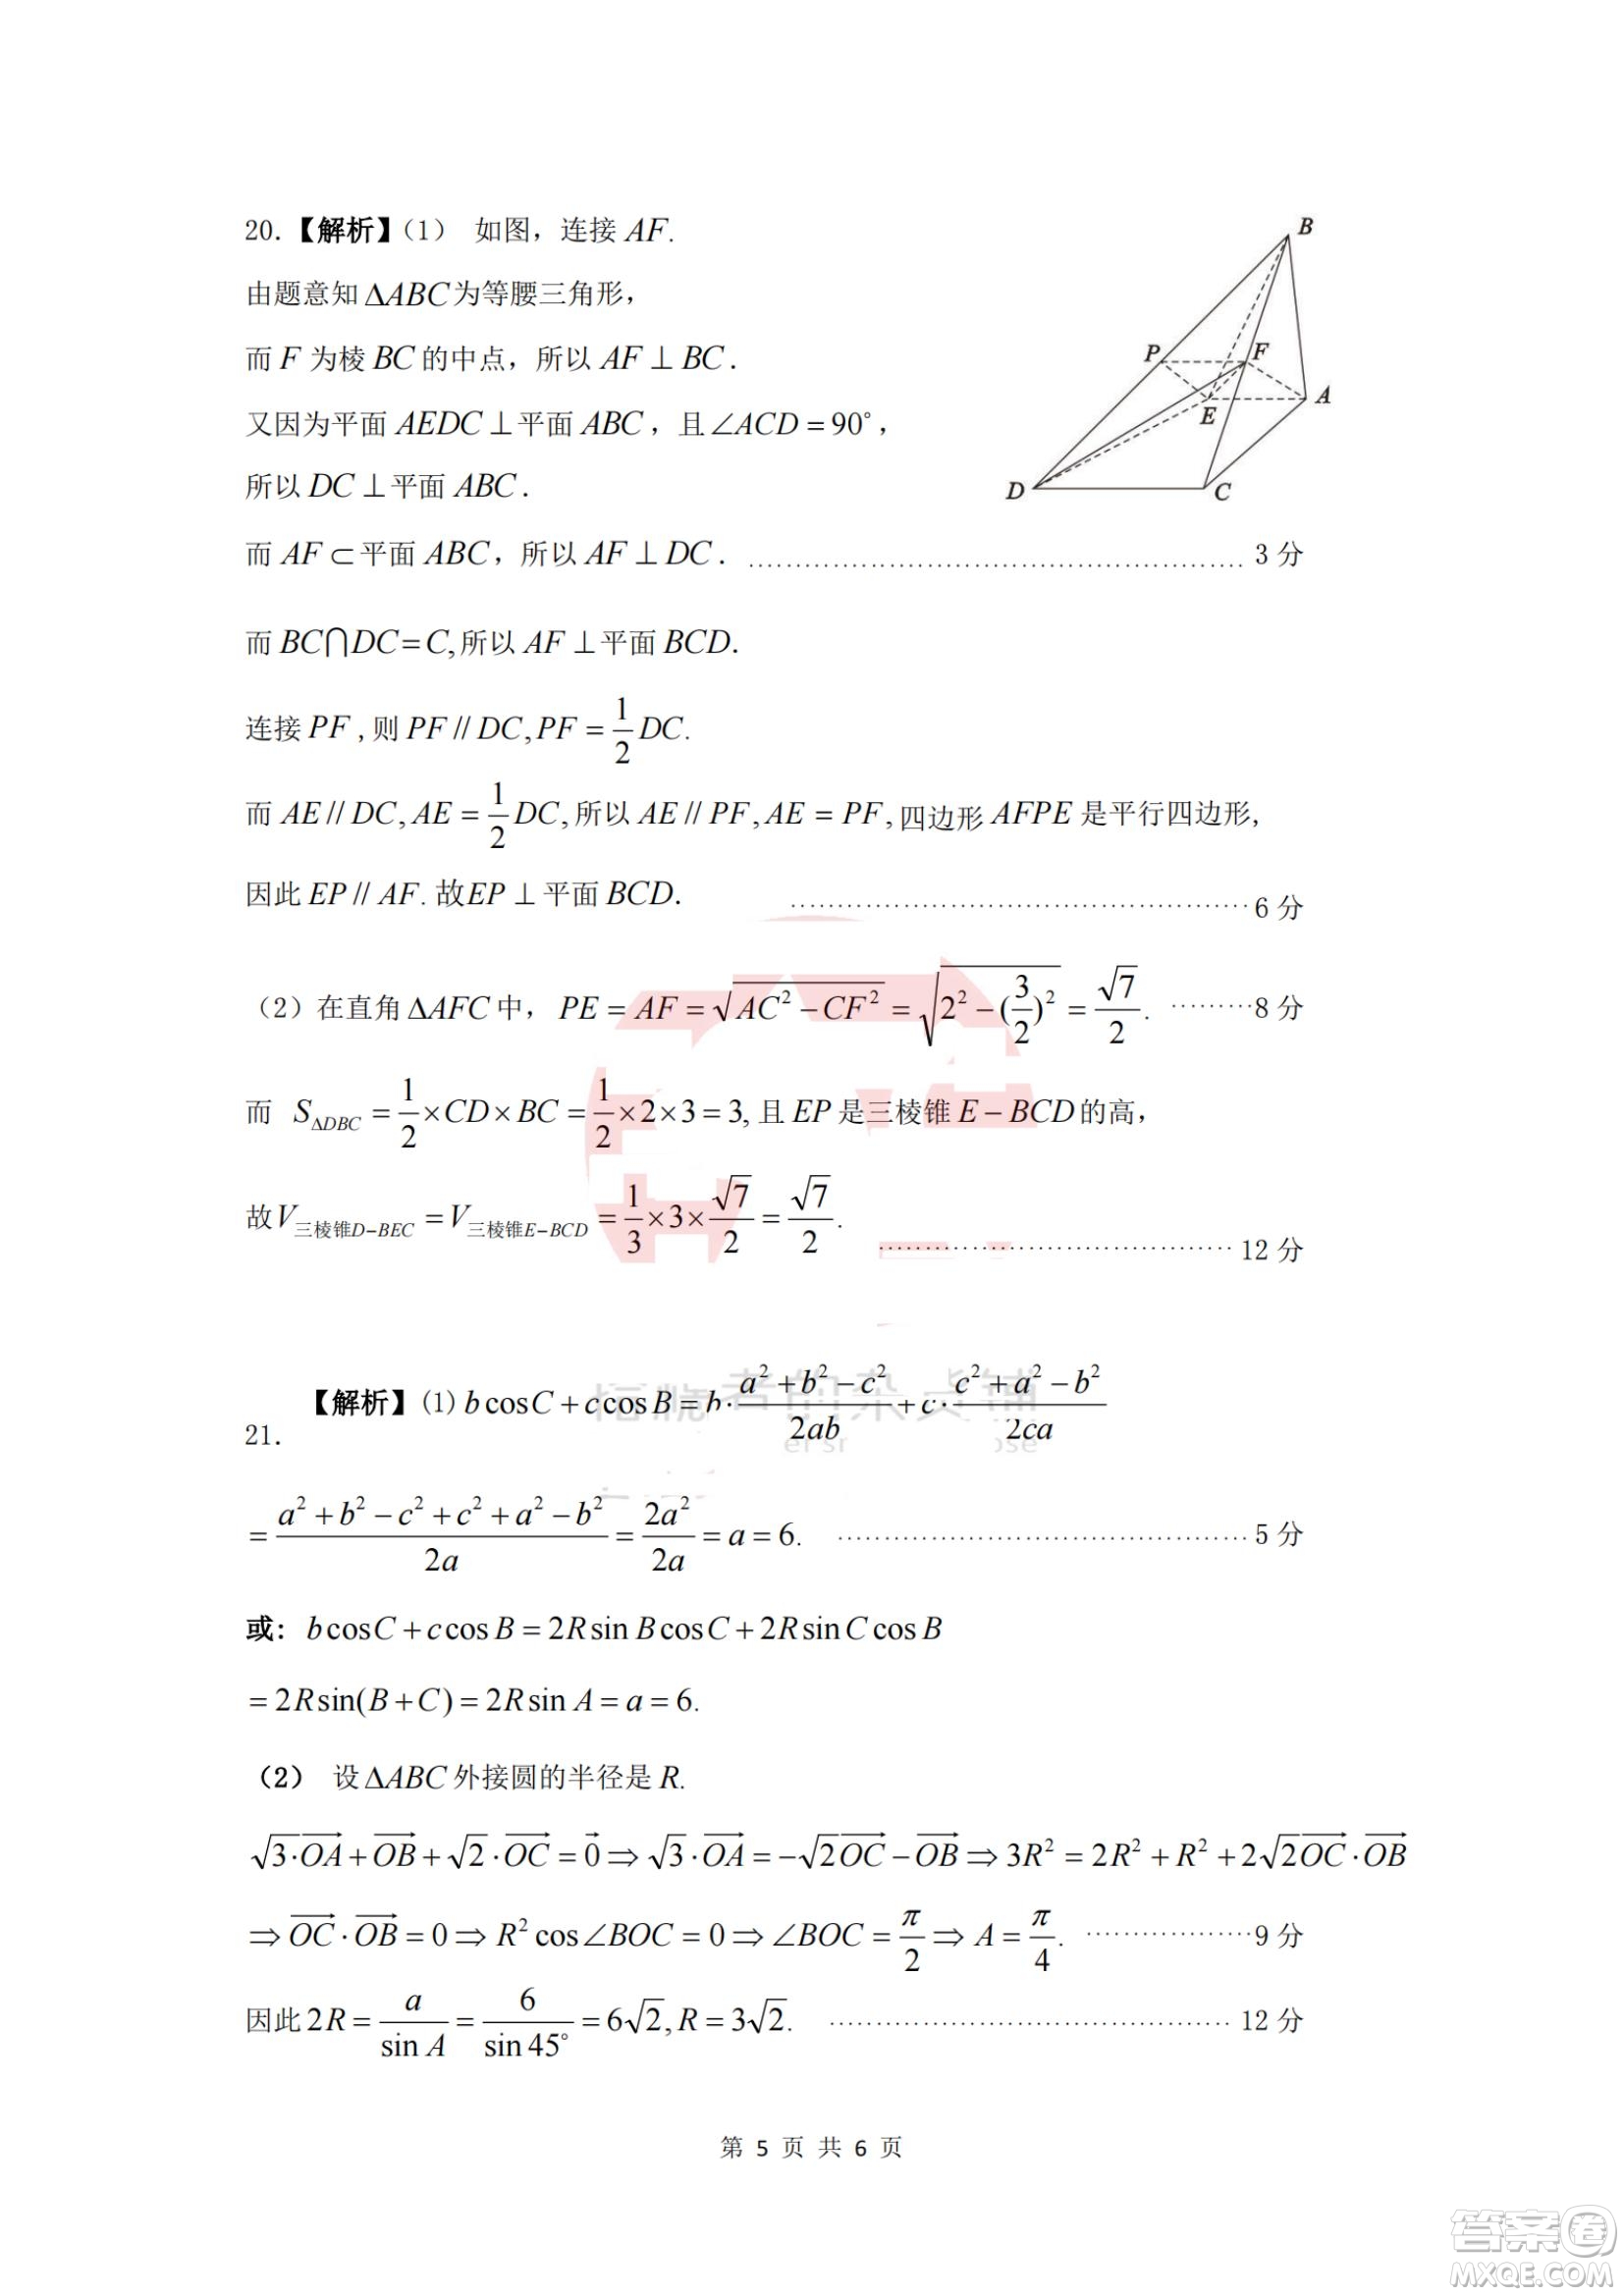 20.【解析】（1） 如图，连接 AF.
由题意知 ΔABC 为等腰三角形，
而 F 为棱 BC 的中点，所以 AF ⊥ BC .
又因为平面 AEDC ⊥平面 ABC ，且 ∠ACD = 90°，
所以 DC ⊥平面 ABC .
B
P
F
A
E
D
C
而 AF ⊂ 平面 ABC，所以 AF ⊥ DC . …………………………………… 3 分
而 BC⋂DC = C, 所以 AF ⊥平面 BCD.
连接 PF , 则 PF // DC, PF = 1/2 DC.
而 AE // DC, AE = 1/2 DC, 所以 AE // PF, AE = PF, 四边形 AFPE 是平行四边形,
因此 EP // AF. 故EP ⊥ 平面 BCD. …………………………………… 6 分
（2）在直角 ΔAFC 中， PE = AF = √(AC² − CF²) = √(2² − (3/2)²) = √7/2. ………8 分
而 S_ΔDBC = 1/2 × CD × BC = 1/2 × 2 × 3 = 3, 且 EP 是三棱锥 E − BCD 的高，
故 V_三棱锥D−BEC = V_三棱锥E−BCD = 1/3 × 3 × √7/2 = √7/2. …………………………… 12 分
21. 【解析】(1) b cos C + c cos B = b · (a² + b² − c²)/2ab + c · (c² + a² − b²)/2ca
= (a² + b² − c² + c² + a² − b²)/2a = 2a²/2a = a = 6. …………………………………… 5 分
或： b cos C + c cos B = 2R sin B cos C + 2R sin C cos B
= 2R sin(B + C) = 2R sin A = a = 6.
（2） 设 ΔABC 外接圆的半径是 R.
√3·OA⃗ + OB⃗ + √2·OC⃗ = 0⃗ ⇒ √3·OA⃗ = −√2OC⃗ − OB⃗ ⇒ 3R² = 2R² + R² + 2√2OC⃗·OB⃗
⇒ OC⃗·OB⃗ = 0 ⇒ R² cos∠BOC = 0 ⇒ ∠BOC = π/2 ⇒ A = π/4. ……………9 分
因此 2R = a/sin A = 6/sin 45° = 6√2, R = 3√2. ………………………………… 12 分
第 5 页 共 6 页
答案卷
MXQE.COM